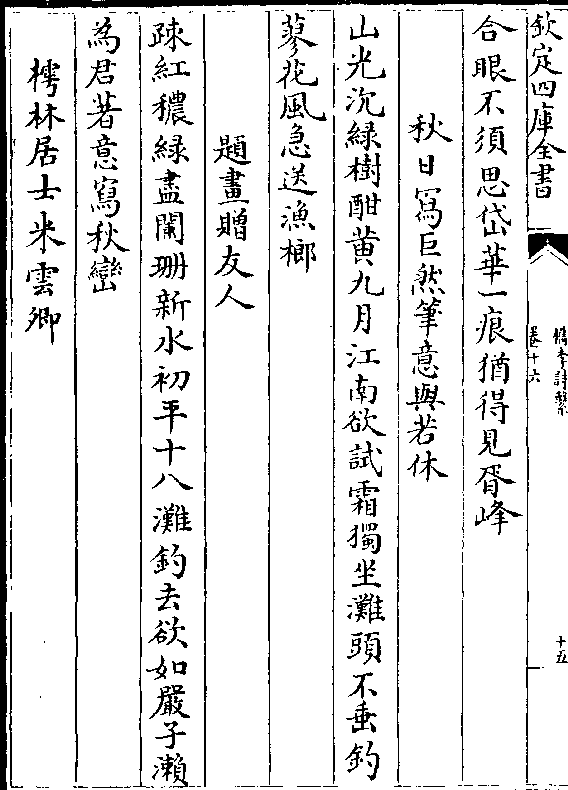 欽定四庫全書
檇李詩繫
卷十六
十五
合眼不須思岱華一痕猶得見胥峰
秋日寫巨然筆意與若休
山光沉綠樹酣黃九月江南欲試霜獨坐灘頭不垂釣
蓼花風急送漁榔
題畫贈友人
疎紅穠綠盡闌珊新水初平十八灘釣去欲如嚴子瀨
為君著意寫秋巒
樗林居士米雲卿